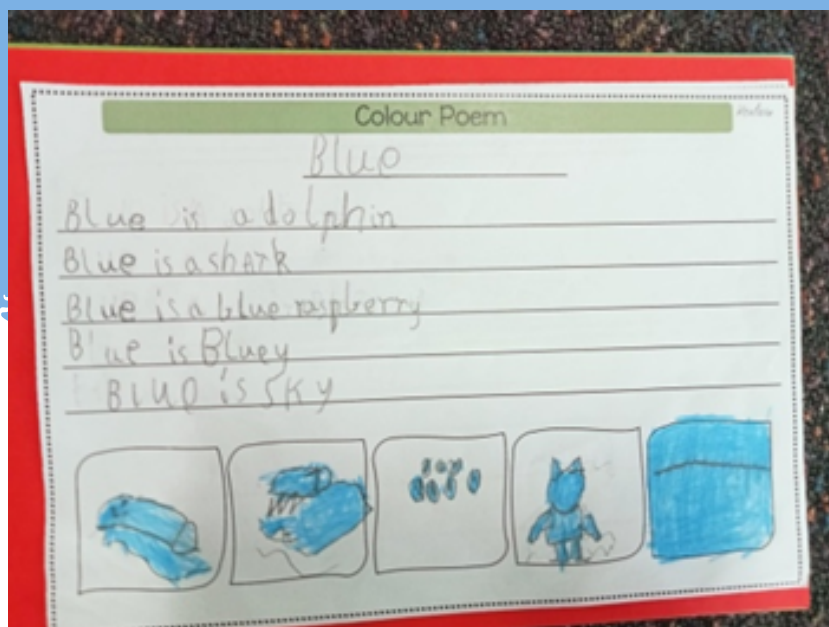 Colour Poem
Blue
Blue is a dolphin
Blue is a shark
Blue is a blue raspberry
Blue is Bluey
Blue is sky